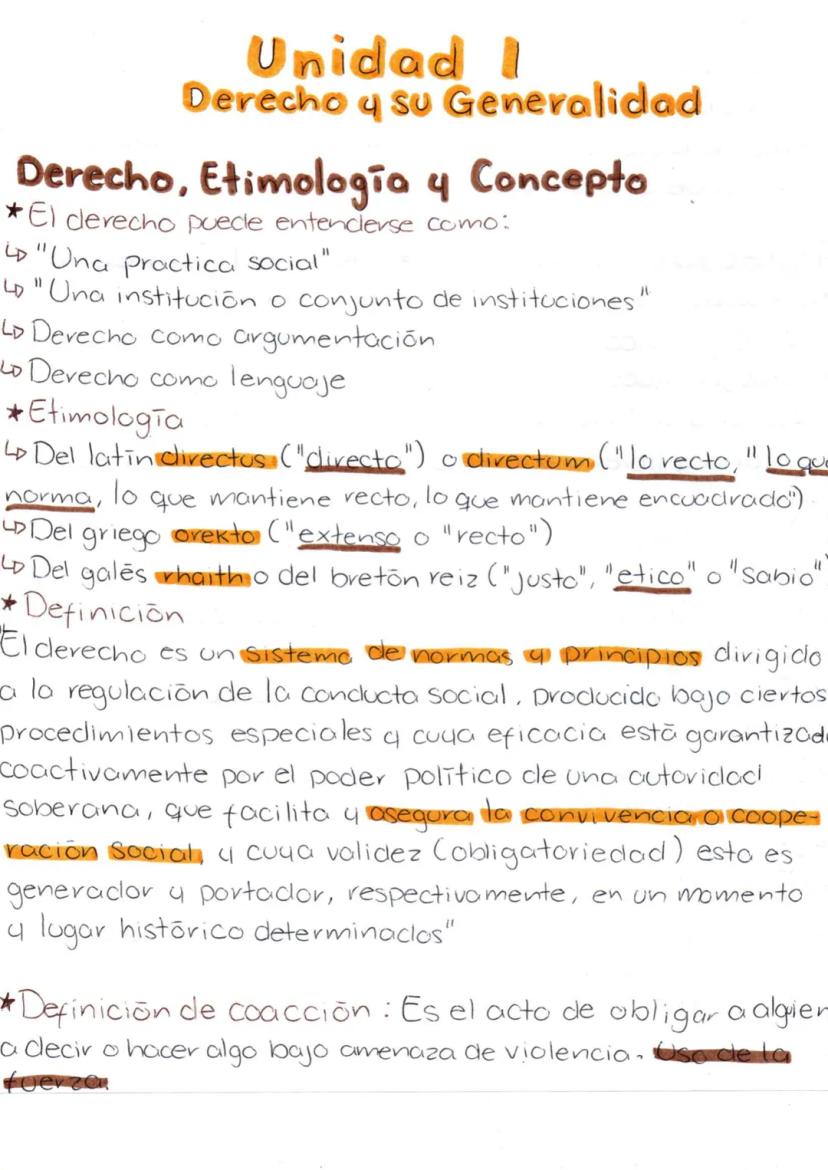 Unidad 1
Derecho y su Generalidad
Derecho, Etimología y Concepto
* El derecho puede entenderse como:
↳ "Una practica social"
↳ "Una institución o conjunto de instituciones"
↳ Derecho como argumentación
↳ Derecho como lenguaje
* Etimología
↳ Del latín directus ("directo") o directum ("lo recto, "lo que
norma, lo que mantiene recto, lo que mantiene encuadrado")
↳ Del griego orekto ("extenso o "recto")
↳ Del galés rhaith o del bretón reiz ("justo", "etico" o "sabio"
* Definición
"El derecho es un sistema de normas y principios dirigido
a la regulación de la conducta social, producido bajo ciertos
procedimientos especiales y cuya eficacia está garantizad
coactivamente por el poder político de una autoridad
soberana, que facilita y asegura la convivencia o coope-
ración social, y cuya validez (obligatoriedad) esto es
generador y portador, respectivamente, en un momento
y lugar histórico determinados"
* Definición de coacción: Es el acto de obligar a alguien
a decir o hacer algo bajo amenaza de violencia. Uso de la
fuerza